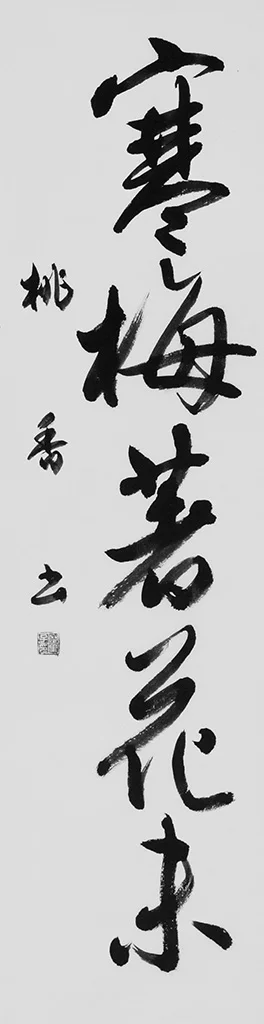 寒梅著花未
桃香書